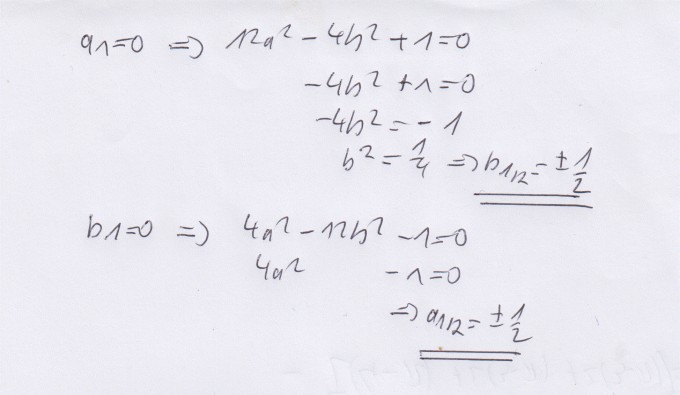 a1=0 => 12a² - 4b² + 1 = 0
-4b² + 1 = 0
-4b² = - 1
b² = 1/4 => b1,2 = ± 1/2
b1=0 => 4a² - 12b² - 1 = 0
4a² - 1 = 0
=> a1,2 = ± 1/2